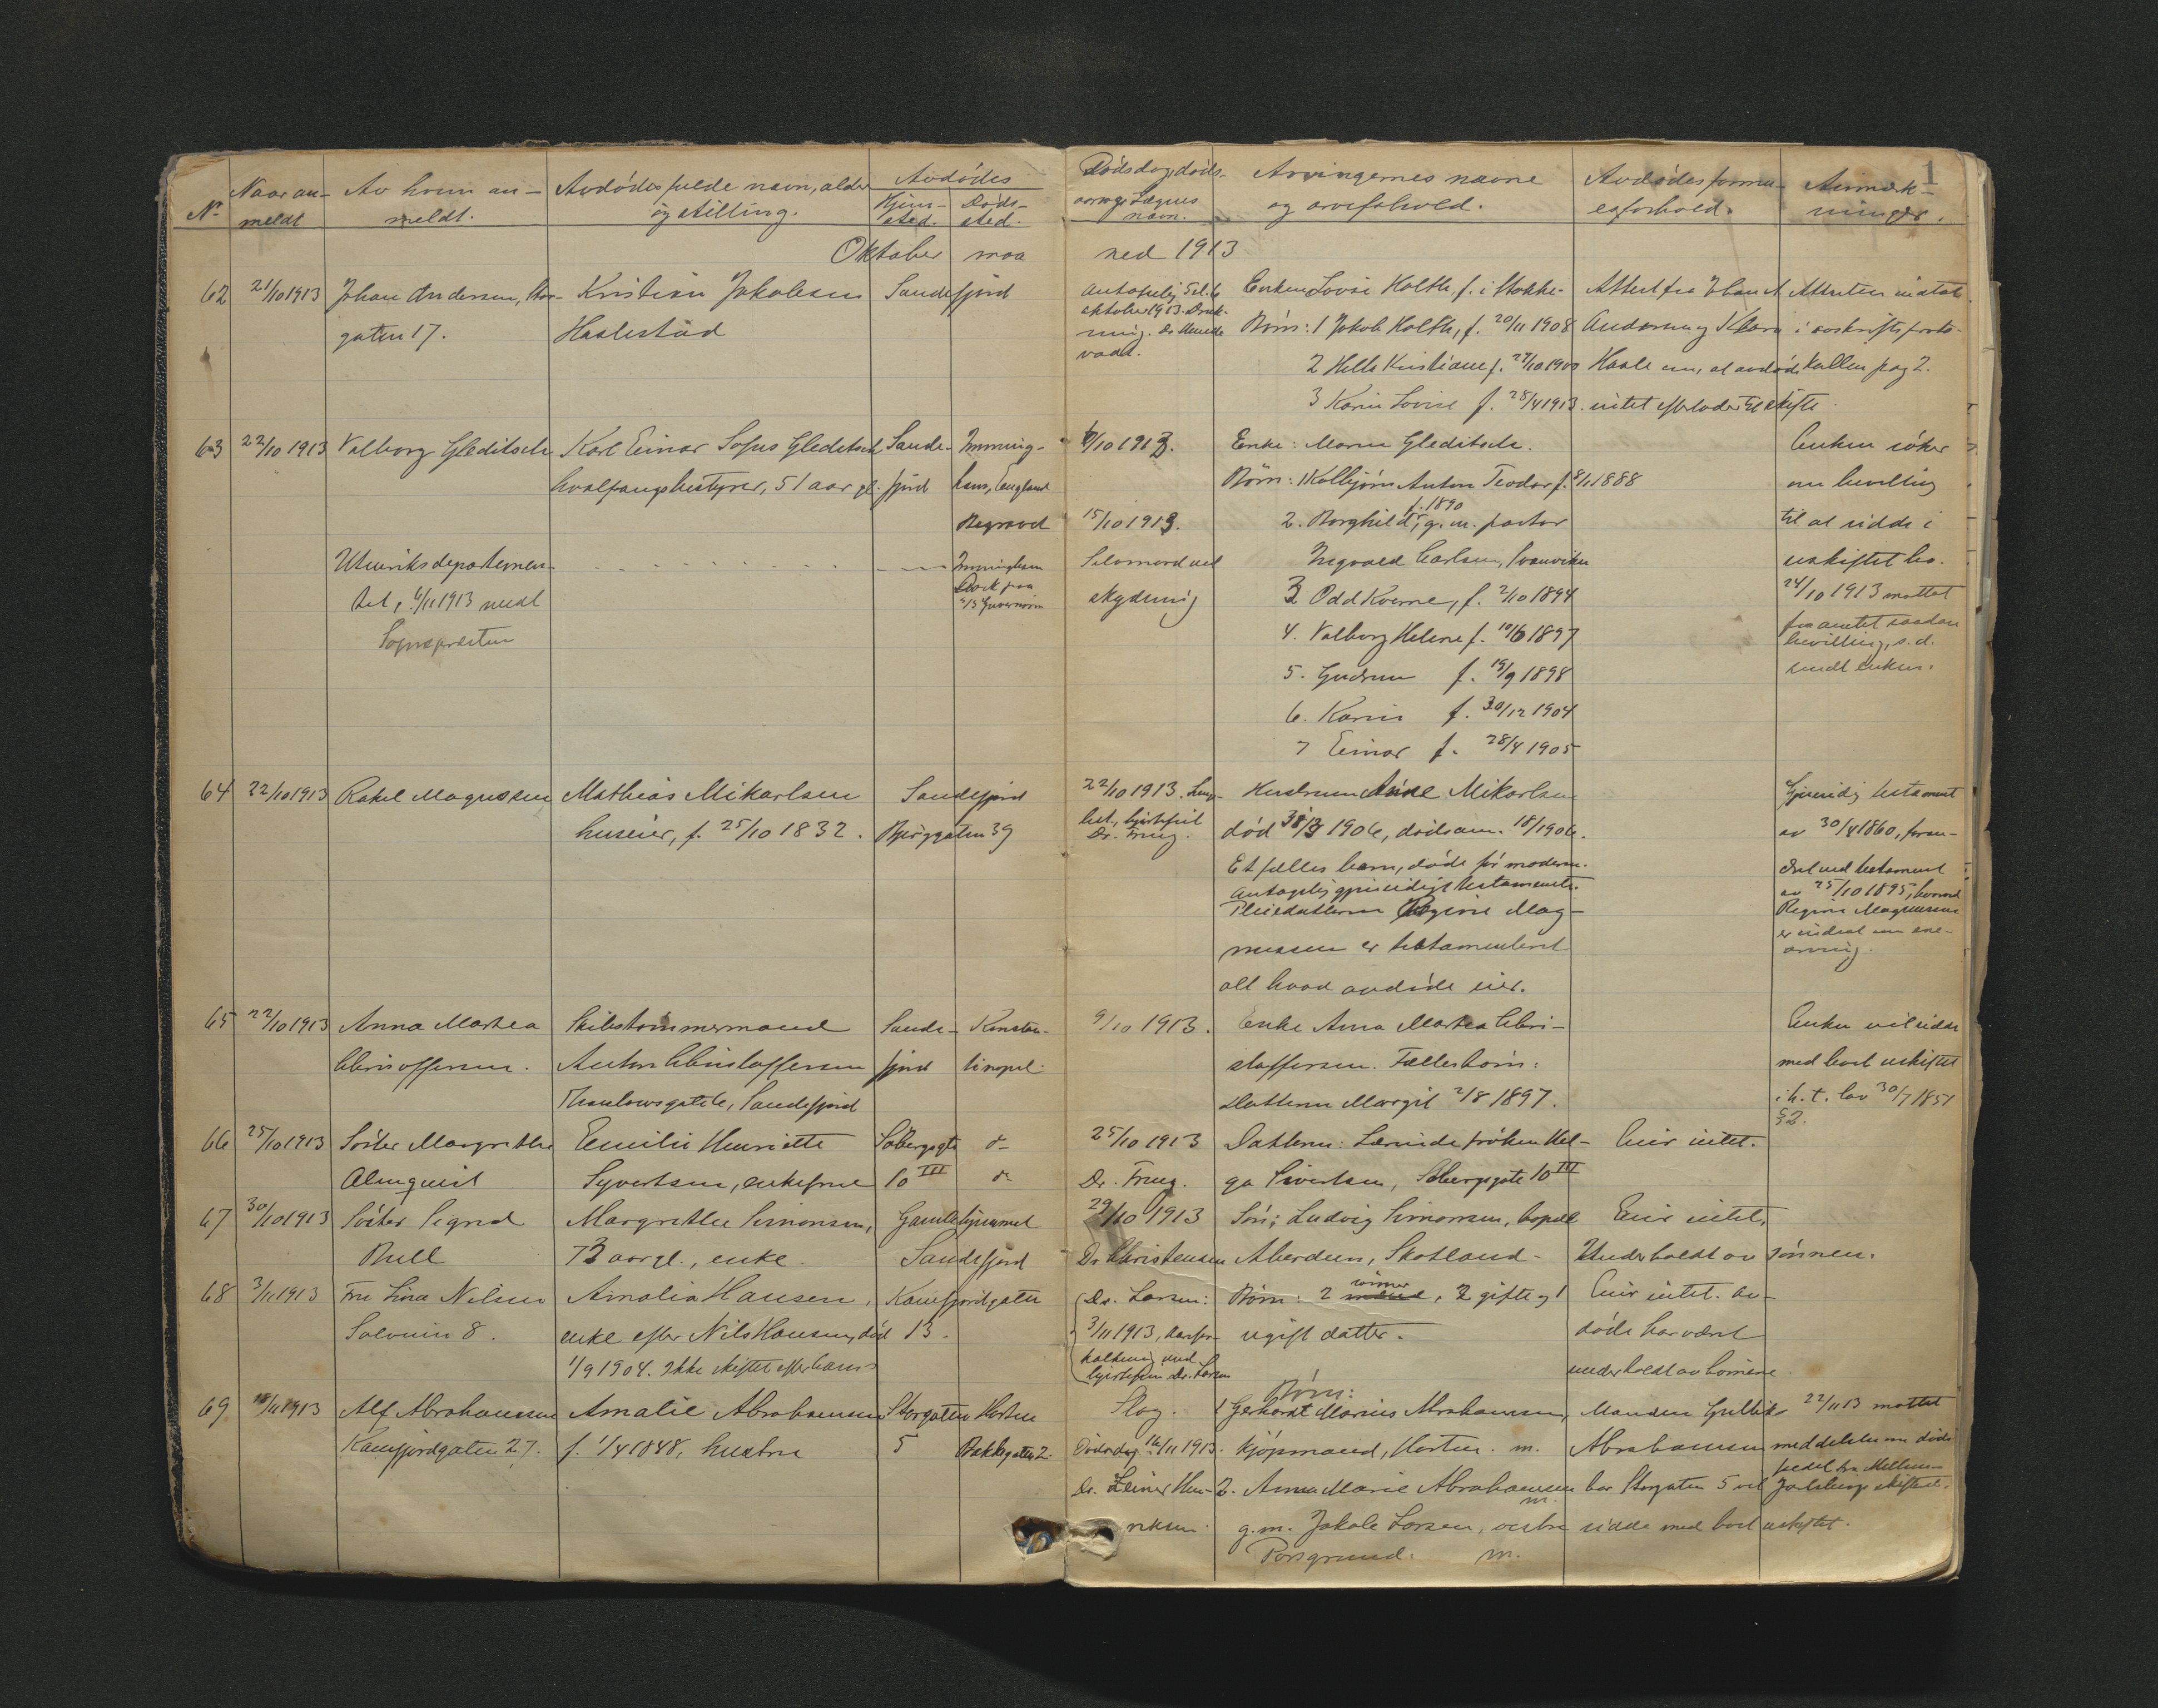 1
No
Naar an-
meldt
Av hvem an-
meldt.
Avdødes fulde navn, alder
og stilling.
Avdødes
Hjem-
sted.
Døds-
sted.
Dødsdag, døds-
aarsag Lægens
navn.
Arvingernes navne
og arveforhold.
Avdødes formu-
esforhold.
Anmærk-
ninger.
Oktober maa
ned 1913
62 21/10 1913 Johan Andersen, Stor-
gaten 17.
Kristian Jakobsen
Haslestad
Sandefjord
antagelig
oktober 1913. Druk-
ning. Dr.
Enken Lovise Holth, f. i Stokke.
Børn: 1 Jakob Holth, f. 20/11 1908
2 Helle Kristiane f. 27/10 1900
3 Karin Lovise f. 28/4 1913.
Attest fra
Andersen og Klara
Hasle om, at avdøde
intet efterlader til skifte.
Attesten indtat
i avskriftsproto-
kollen pag 2.
63 22/10 1913 Valborg Gleditsch
Karl Einar Sofus Gleditsch
hvalfangstbestyrer, 51 aar gl.
Sande-
fjord
Imming-
ham, England
Begravet
6/10 1913.
15/10 1913.
Enke: Maren Gleditsch.
Børn: 1 Kolbjørn Anton Teodor f. 8/1 1888
f. 1890
2. Borghild, g. m. pastor
Ingvald Carlsen, Svanviken
3 Odd Kverne, f. 2/10 1894
4. Valborg Helene f. 10/6 1897
5. Gudrun f. 19/9 1898
6. Karin f. 30/12 1904
7 Einar f. 28/4 1905
Enken søker
om bevilling
til at sidde i
uskiftet bo.
24/10 1913 mottat
fra amtet saadan
bevilling, s. d.
sendt enken.
Utenriksdepartemen-
tet, 6/11 1913 medl
Sogneprestn
Immingham
Dock paa
s/s Guvernøren
Selvmord ved
skydning
64 22/10 1913 Rakel Magnussen
Mathias Mikarlsen
huseier, f. 25/10 1832.
Sandefjord
Bjerggaten 39
22/10 1913. Lung-
bet., hjertefeil
Dr. Freng.
Hustruen Anne Mikarlsen
død 1906, dødsanm. 18/1906.
Et fælles barn, døde før moderen.
Antagelig gjensidigt testamente.
Pleiedatteren Regine Mag-
nussen er testamenteret
alt hvad avdøde eier.
Gjensidig testament
av 30/4 1860, foran-
dret ved testament
av 25/10 1895, hvorved
Regine Magnussen
er indsat som ene-
arving.
65 22/10 1913 Anna Martea
Christoffersen.
Skibstømmermand
Anton Christoffersen
Thaulowsgate 6, Sandefjord
Sande-
fjord
Konstan-
tinopel.
9/10 1913.
Enke Anna Martea Chri-
stoffersen. Fællesbørn:
Datteren Margit 2/8 1897.
Enken vil sidde
med boet uskiftet
i h. t. lov 30/7 1851
§2.
66 25/10 1913 Søster Margrethe
Almquist
Emilie Henriette
Syvertsen, enkefrue
Søbergsgt
10 III
do
do
25/10 1913
Dr. Freng.
Datteren: Lærerinde frøken Hel-
ga Sivertsen, Søbergsgate 10 III
Eier intet.
67 30/10 1913 Søster Signed
Bull
Margrethe Simonsen,
73 aar gl., enke.
Gamlehjemmet
Sandefjord
29/10 1913
Dr Christensen
Søn: Ludvig Simonsen, bopæl
Aberdeen, Skotland.
Eier intet,
Underholdt av sønnen.
68 3/11 1913 Fru Lina Nilsen
Solvein 8.
Amalia Hansen,
enke efter Nils Hansen, død
1/9 1904. Ikke skiftet efter ham
Kamfjordgaten
13.
Dr. Larsen:
3/11 1913,
hjertefeil Dr. Larsen
Børn: 2 sønner, 2 gifte og 1
ugift datter.
Eier intet. Av-
døde har været
underholdt av børnene.
69 18/11 1913 Alf Abrahamsen
Kamfjordgaten 27.
Amalie Abrahamsen
f. 1/4 1848, hustru
Storgaten
5
Horten
Bakkegaten 2.
Slag.
Dødsdag 16/11 1913.
Dr. Zeiner Hen-
riksen.
Børn:
1 Gerhardt Marius Abrahamsen,
kjøpmand, Horten. m.
2. Anna Marie Abrahamsen
m.
g. m. Jakob Larsen, vestre
Porsgrund. m.
Manden Gullik
Abrahamsen
bor Storgaten 5 vil
sidde med boet uskiftet.
22/11 13 mottat
meddelelse om døds-
fedel fra Mellem-
Jarlsberg skifteret.